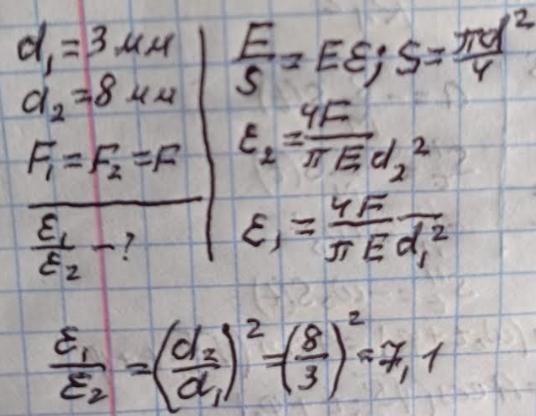 d₁ = 3 мм
d₂ = 8 мм
F₁ = F₂ = F
ε₁/ε₂ - ?
E/S = Eε; S = πd²/4
ε₂ = 4F/πEd₂²
ε₁ = 4F/πEd₁²
ε₁/ε₂ = (d₂/d₁)² = (8/3)² = 7,1